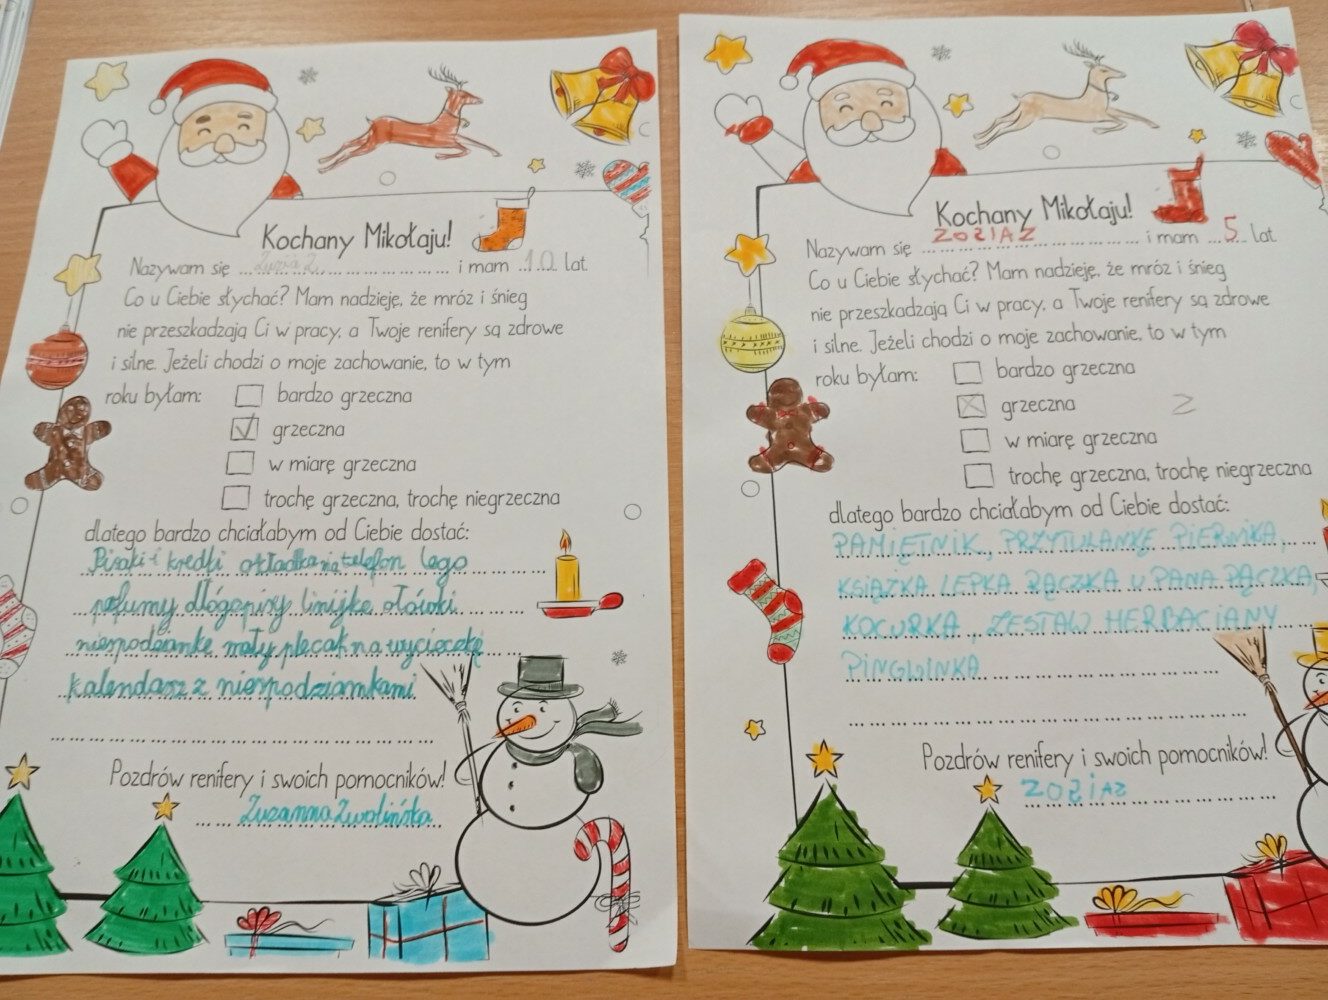 Kochany Mikołaju!
Nazywam się Zuza Z. i mam 10 lat.
Co u Ciebie słychać? Mam nadzieję, że mróz i śnieg
nie przeszkadzają Ci w pracy, a Twoje renifery są zdrowe
i silne. Jeżeli chodzi o moje zachowanie, to w tym
roku byłam: bardzo grzeczna
grzeczna
w miarę grzeczna
trochę grzeczna, trochę niegrzeczna
dlatego bardzo chciałabym od Ciebie dostać:
Pisaki i kredki okładka na telefon lego
pefumy dłógopisy linijke ołówki
niespodziankę mały plecak na wycieczkę
kalendasz z niespodziankami
Pozdrów renifery i swoich pomocników!
Zuzanna Zwolińska
Kochany Mikołaju!
Nazywam się ZOSIA Z i mam 5 lat.
Co u Ciebie słychać? Mam nadzieję, że mróz i śnieg
nie przeszkadzają Ci w pracy, a Twoje renifery są zdrowe
i silne. Jeżeli chodzi o moje zachowanie, to w tym
roku byłam: bardzo grzeczna
grzeczna Z
w miarę grzeczna
trochę grzeczna, trochę niegrzeczna
dlatego bardzo chciałabym od Ciebie dostać:
PAMIĘTNIK, PRZYTULANKĘ PIERNIKA,
KSIĄŻKA LEPKA RĄCZKA U PANA PĄCZKA,
KOCURKA, ZESTAW HERBACIANY
PINGWINKA
Pozdrów renifery i swoich pomocników!
ZOSIA Z